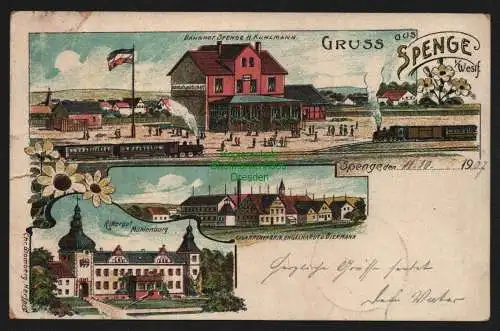 BAHNHOF SPENGE H. KUHLMANN.
GRUSS aus
SPENGE
i/Westf.
Dresden
Spenge, den 11.10. 1907
Rittergut
Mühlenburg
CIGARRENFABRIK ENGELHARDT U. BIERMANN.
Herzliche Grüße sendet
Dein Vater